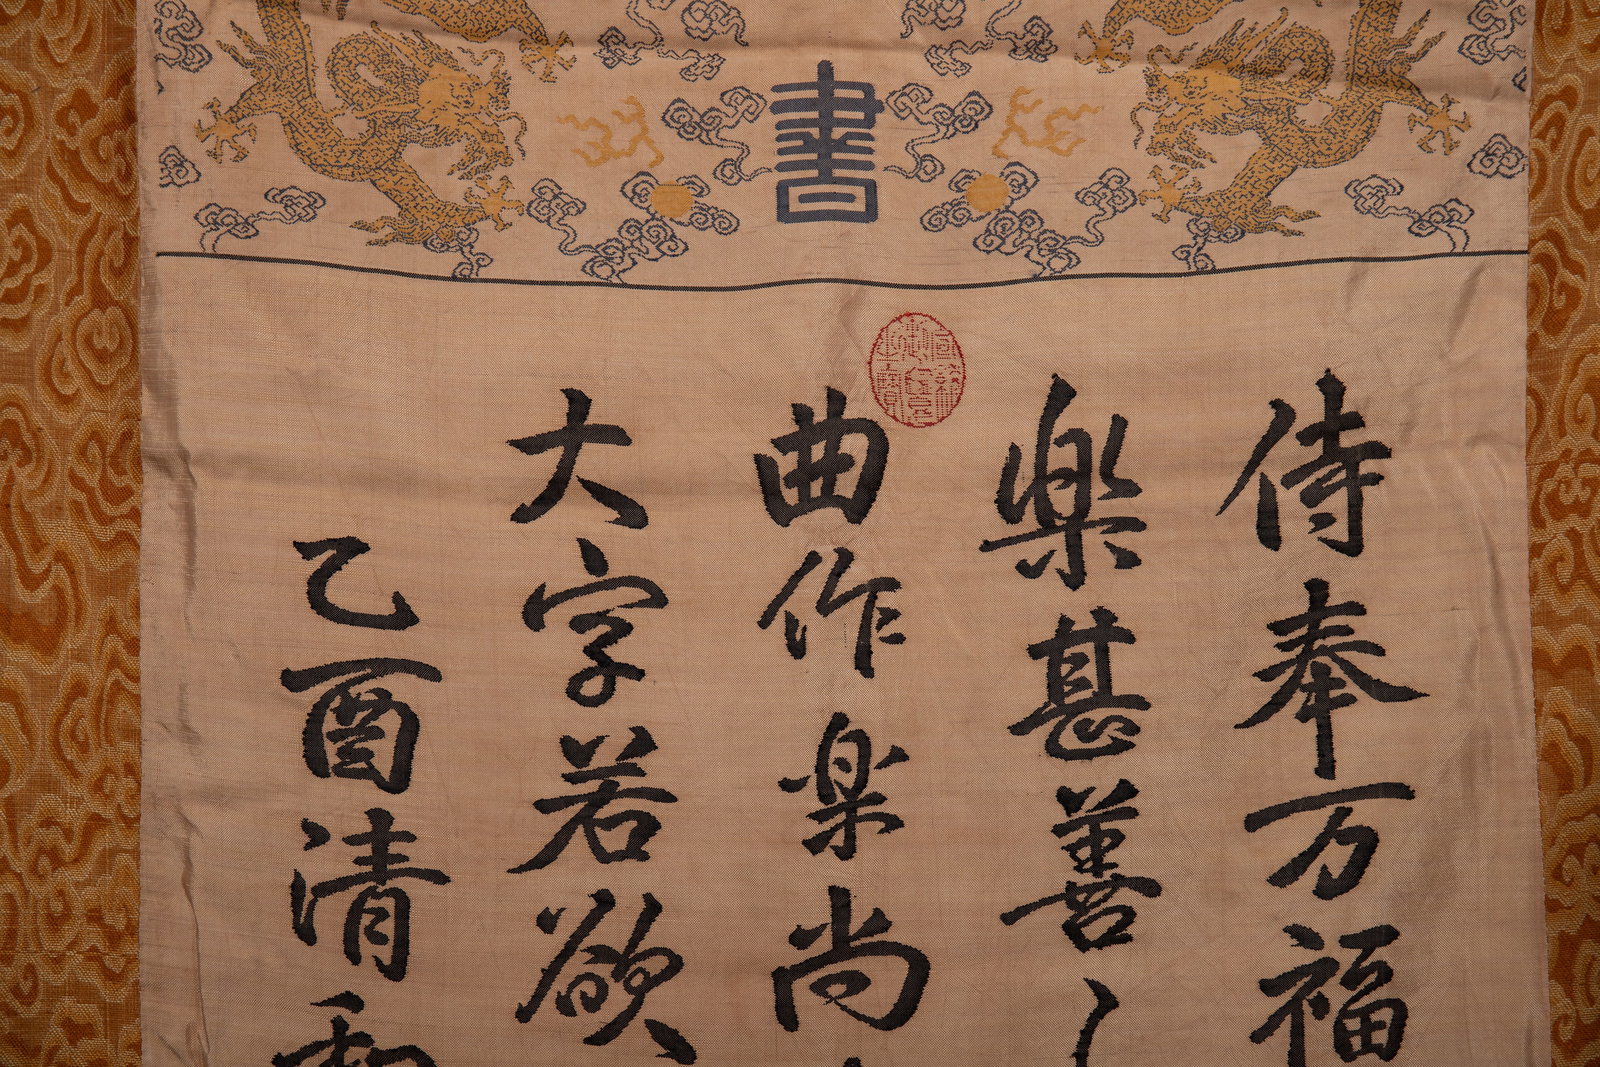 書
侍奉万福
楽甚善
曲作楽尚
大字若欲
乙酉清